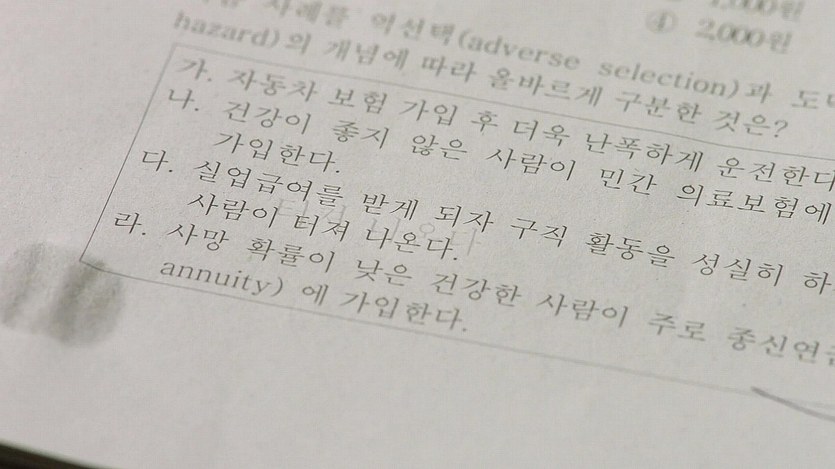 ④ 2,000원
사례를 역선택(adverse selection)과
hazard)의 개념에 따라 올바르게 구분한 것은?
가. 자동차 보험 가입 후 더욱 난폭하게 운전한다
나. 건강이 좋지 않은 사람이 민간 의료보험에
가입한다.
다. 실업급여를 받게 되자 구직 활동을 성실히 하
사람이 터져 나온다.
라. 사망 확률이 낮은 건강한 사람이 주로 종신연금
annuity) 에 가입한다.